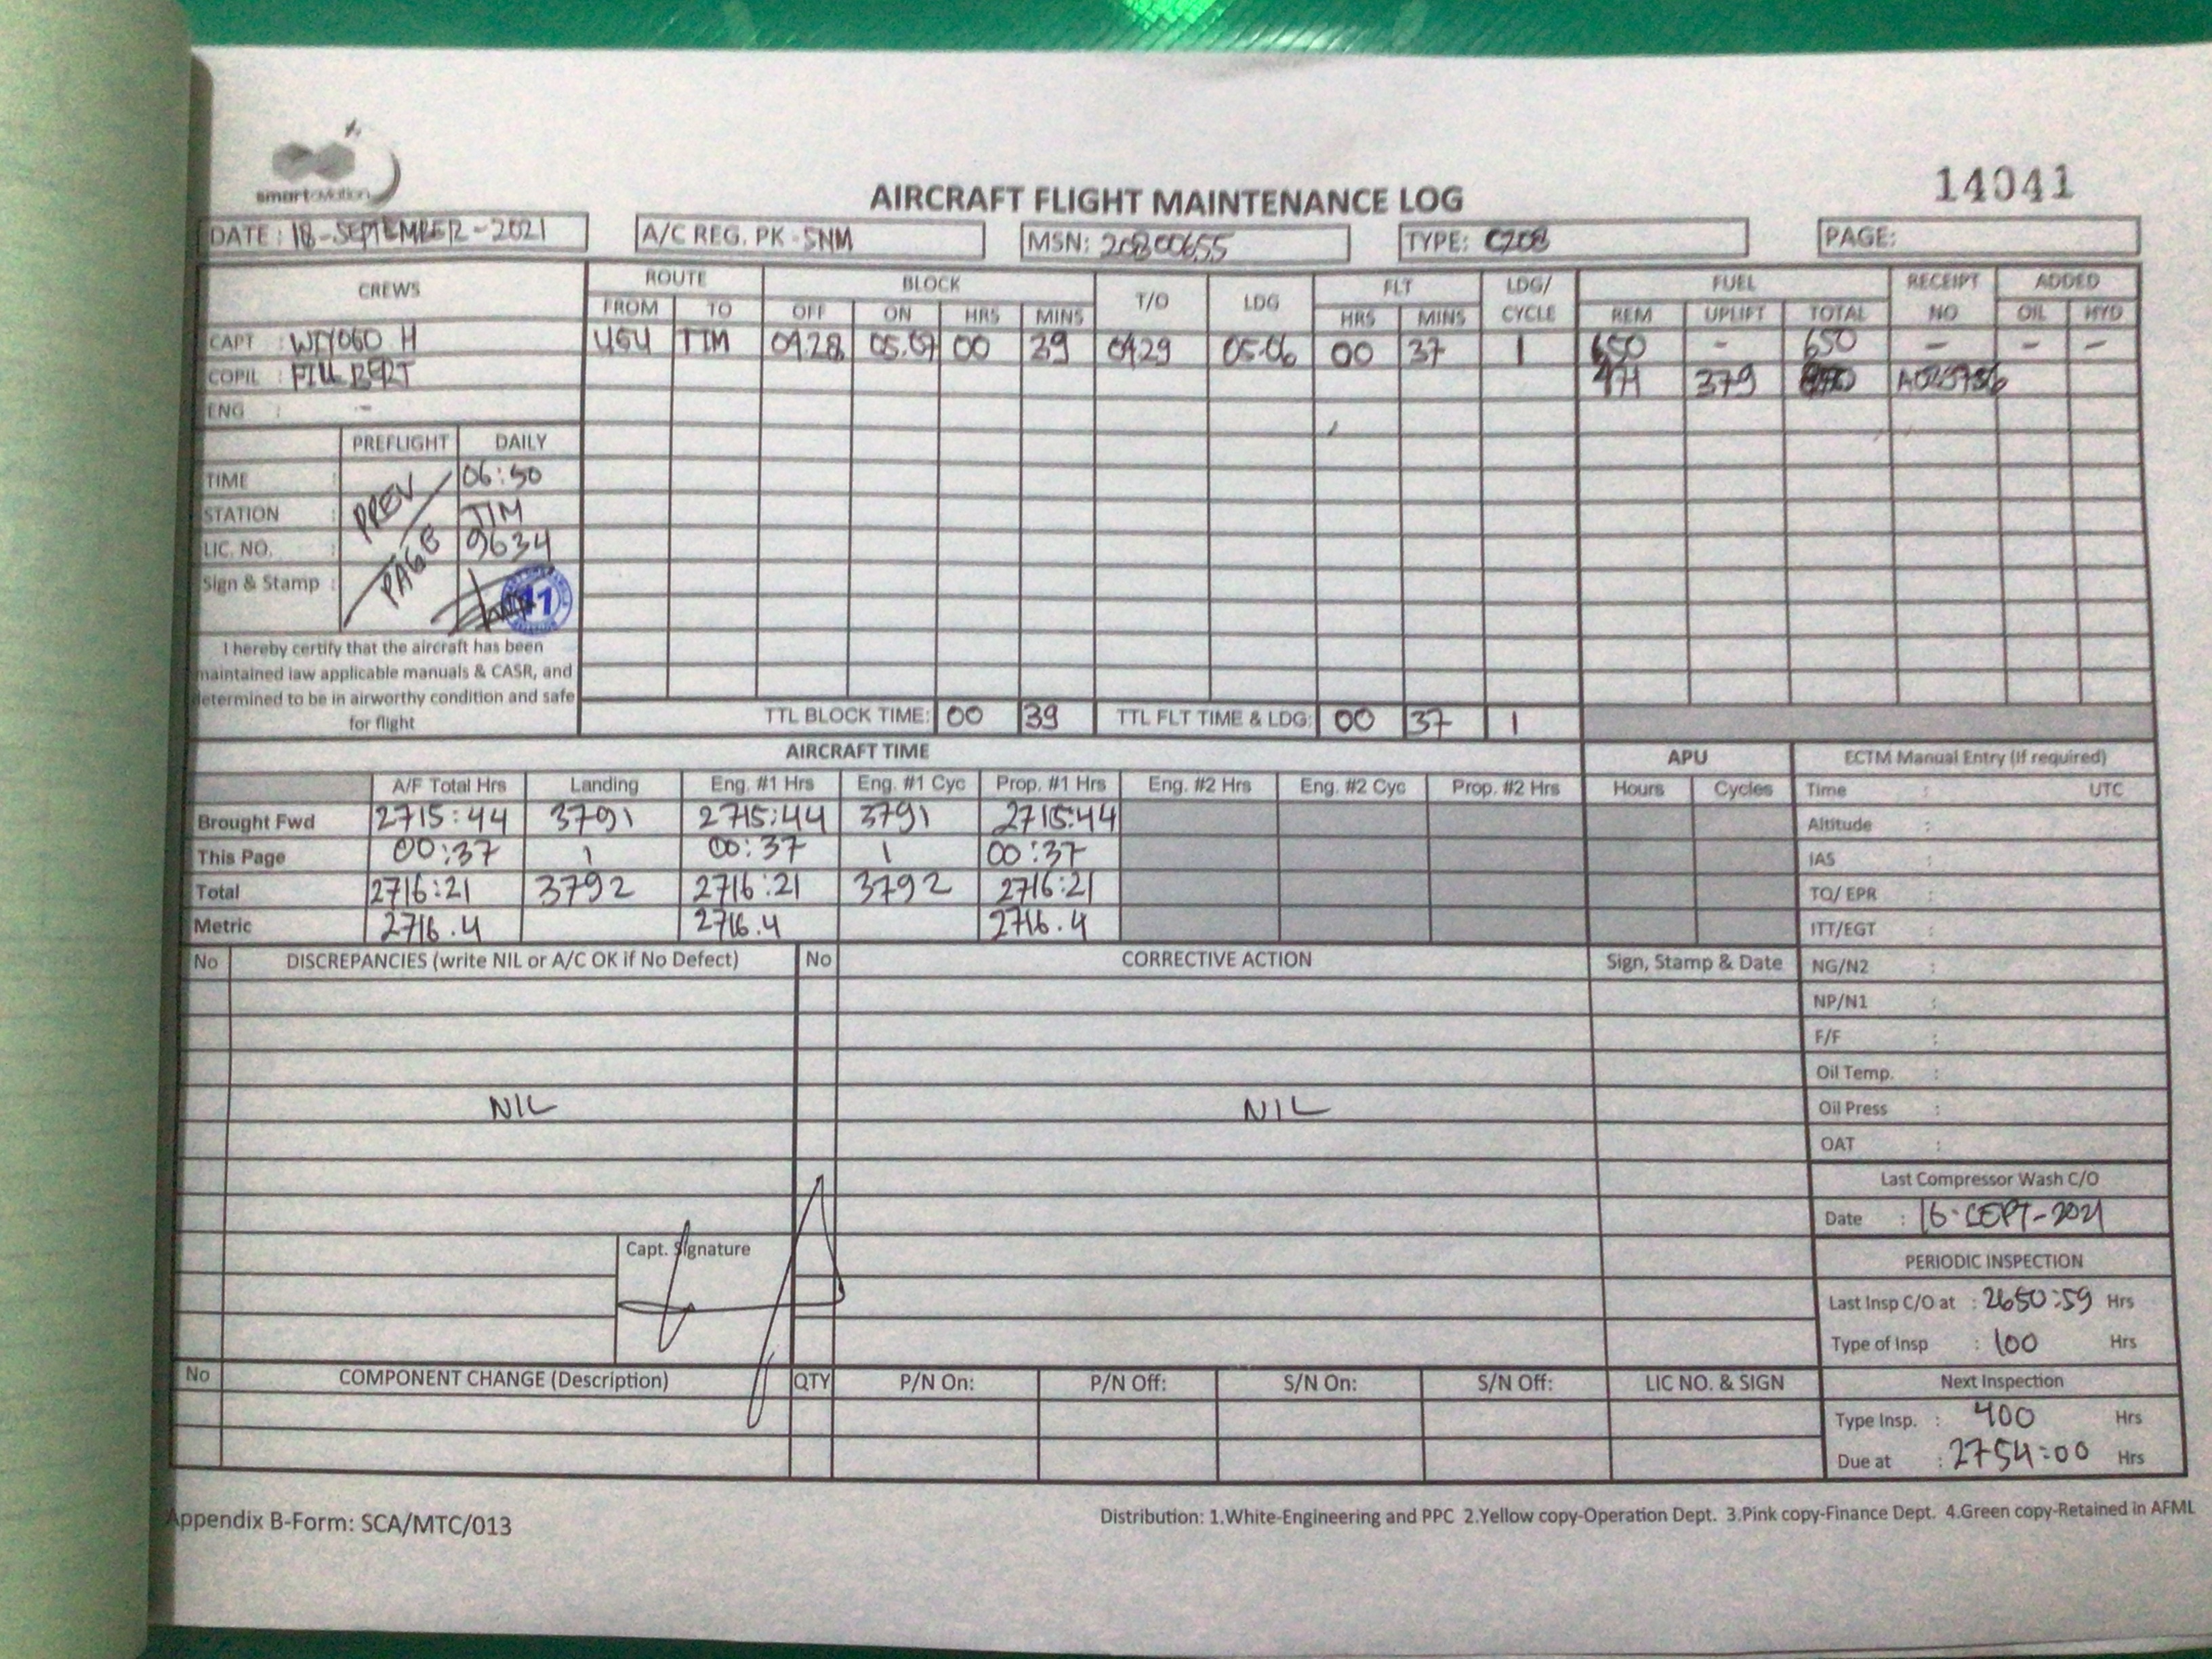 smart aviation
AIRCRAFT FLIGHT MAINTENANCE LOG
14041
DATE : 18-SEPTEMBER-2021 A/C REG. PK - SNM MSN: 20800655 TYPE: C208 PAGE:
CREWS ROUTE BLOCK T/O LDG FLT LDG/ CYCLE FUEL RECEIPT NO ADDED
FROM TO OFF ON HRS MINS HRS MINS REM UPLIFT TOTAL OIL HYD
CAPT : H UGU TIM 04.28 05.07 00 39 0429 05.06 00 37 1 650 - 650 - - -
COPIL : FILLBERT 471 379
ENG : -
PREFLIGHT DAILY
TIME : 06:50
STATION : TIM
LIC. NO. : 9634
PREV PAGE
Sign & Stamp :
11
I hereby certify that the aircraft has been
maintained iaw applicable manuals & CASR, and
determined to be in airworthy condition and safe
for flight
TTL BLOCK TIME: 00 39 TTL FLT TIME & LDG: 00 37 1
AIRCRAFT TIME APU ECTM Manual Entry (If required)
A/F Total Hrs Landing Eng. #1 Hrs Eng. #1 Cyc Prop. #1 Hrs Eng. #2 Hrs Eng. #2 Cyc Prop. #2 Hrs Hours Cycles Time : UTC
Brought Fwd 2715:44 3791 2715:44 3791 2715:44 Altitude :
This Page 00:37 1 00:37 1 00:37 IAS :
Total 2716:21 3792 2716:21 3792 2716:21 TQ/ EPR :
Metric 2716.4 2716.4 2716.4 ITT/EGT :
No DISCREPANCIES (write NIL or A/C OK if No Defect) No CORRECTIVE ACTION Sign, Stamp & Date NG/N2 :
NP/N1 :
F/F :
Oil Temp. :
NIL NIL Oil Press :
OAT :
Last Compressor Wash C/O
Date : 16-SEPT-2021
Capt. Signature
PERIODIC INSPECTION
Last Insp C/O at : 2650:59 Hrs
Type of Insp : 100 Hrs
No COMPONENT CHANGE (Description) QTY P/N On: P/N Off: S/N On: S/N Off: LIC NO. & SIGN Next Inspection
Type Insp. : 400 Hrs
Due at : 2754:00 Hrs
Appendix B-Form: SCA/MTC/013
Distribution: 1.White-Engineering and PPC 2.Yellow copy-Operation Dept. 3.Pink copy-Finance Dept. 4.Green copy-Retained in AFML